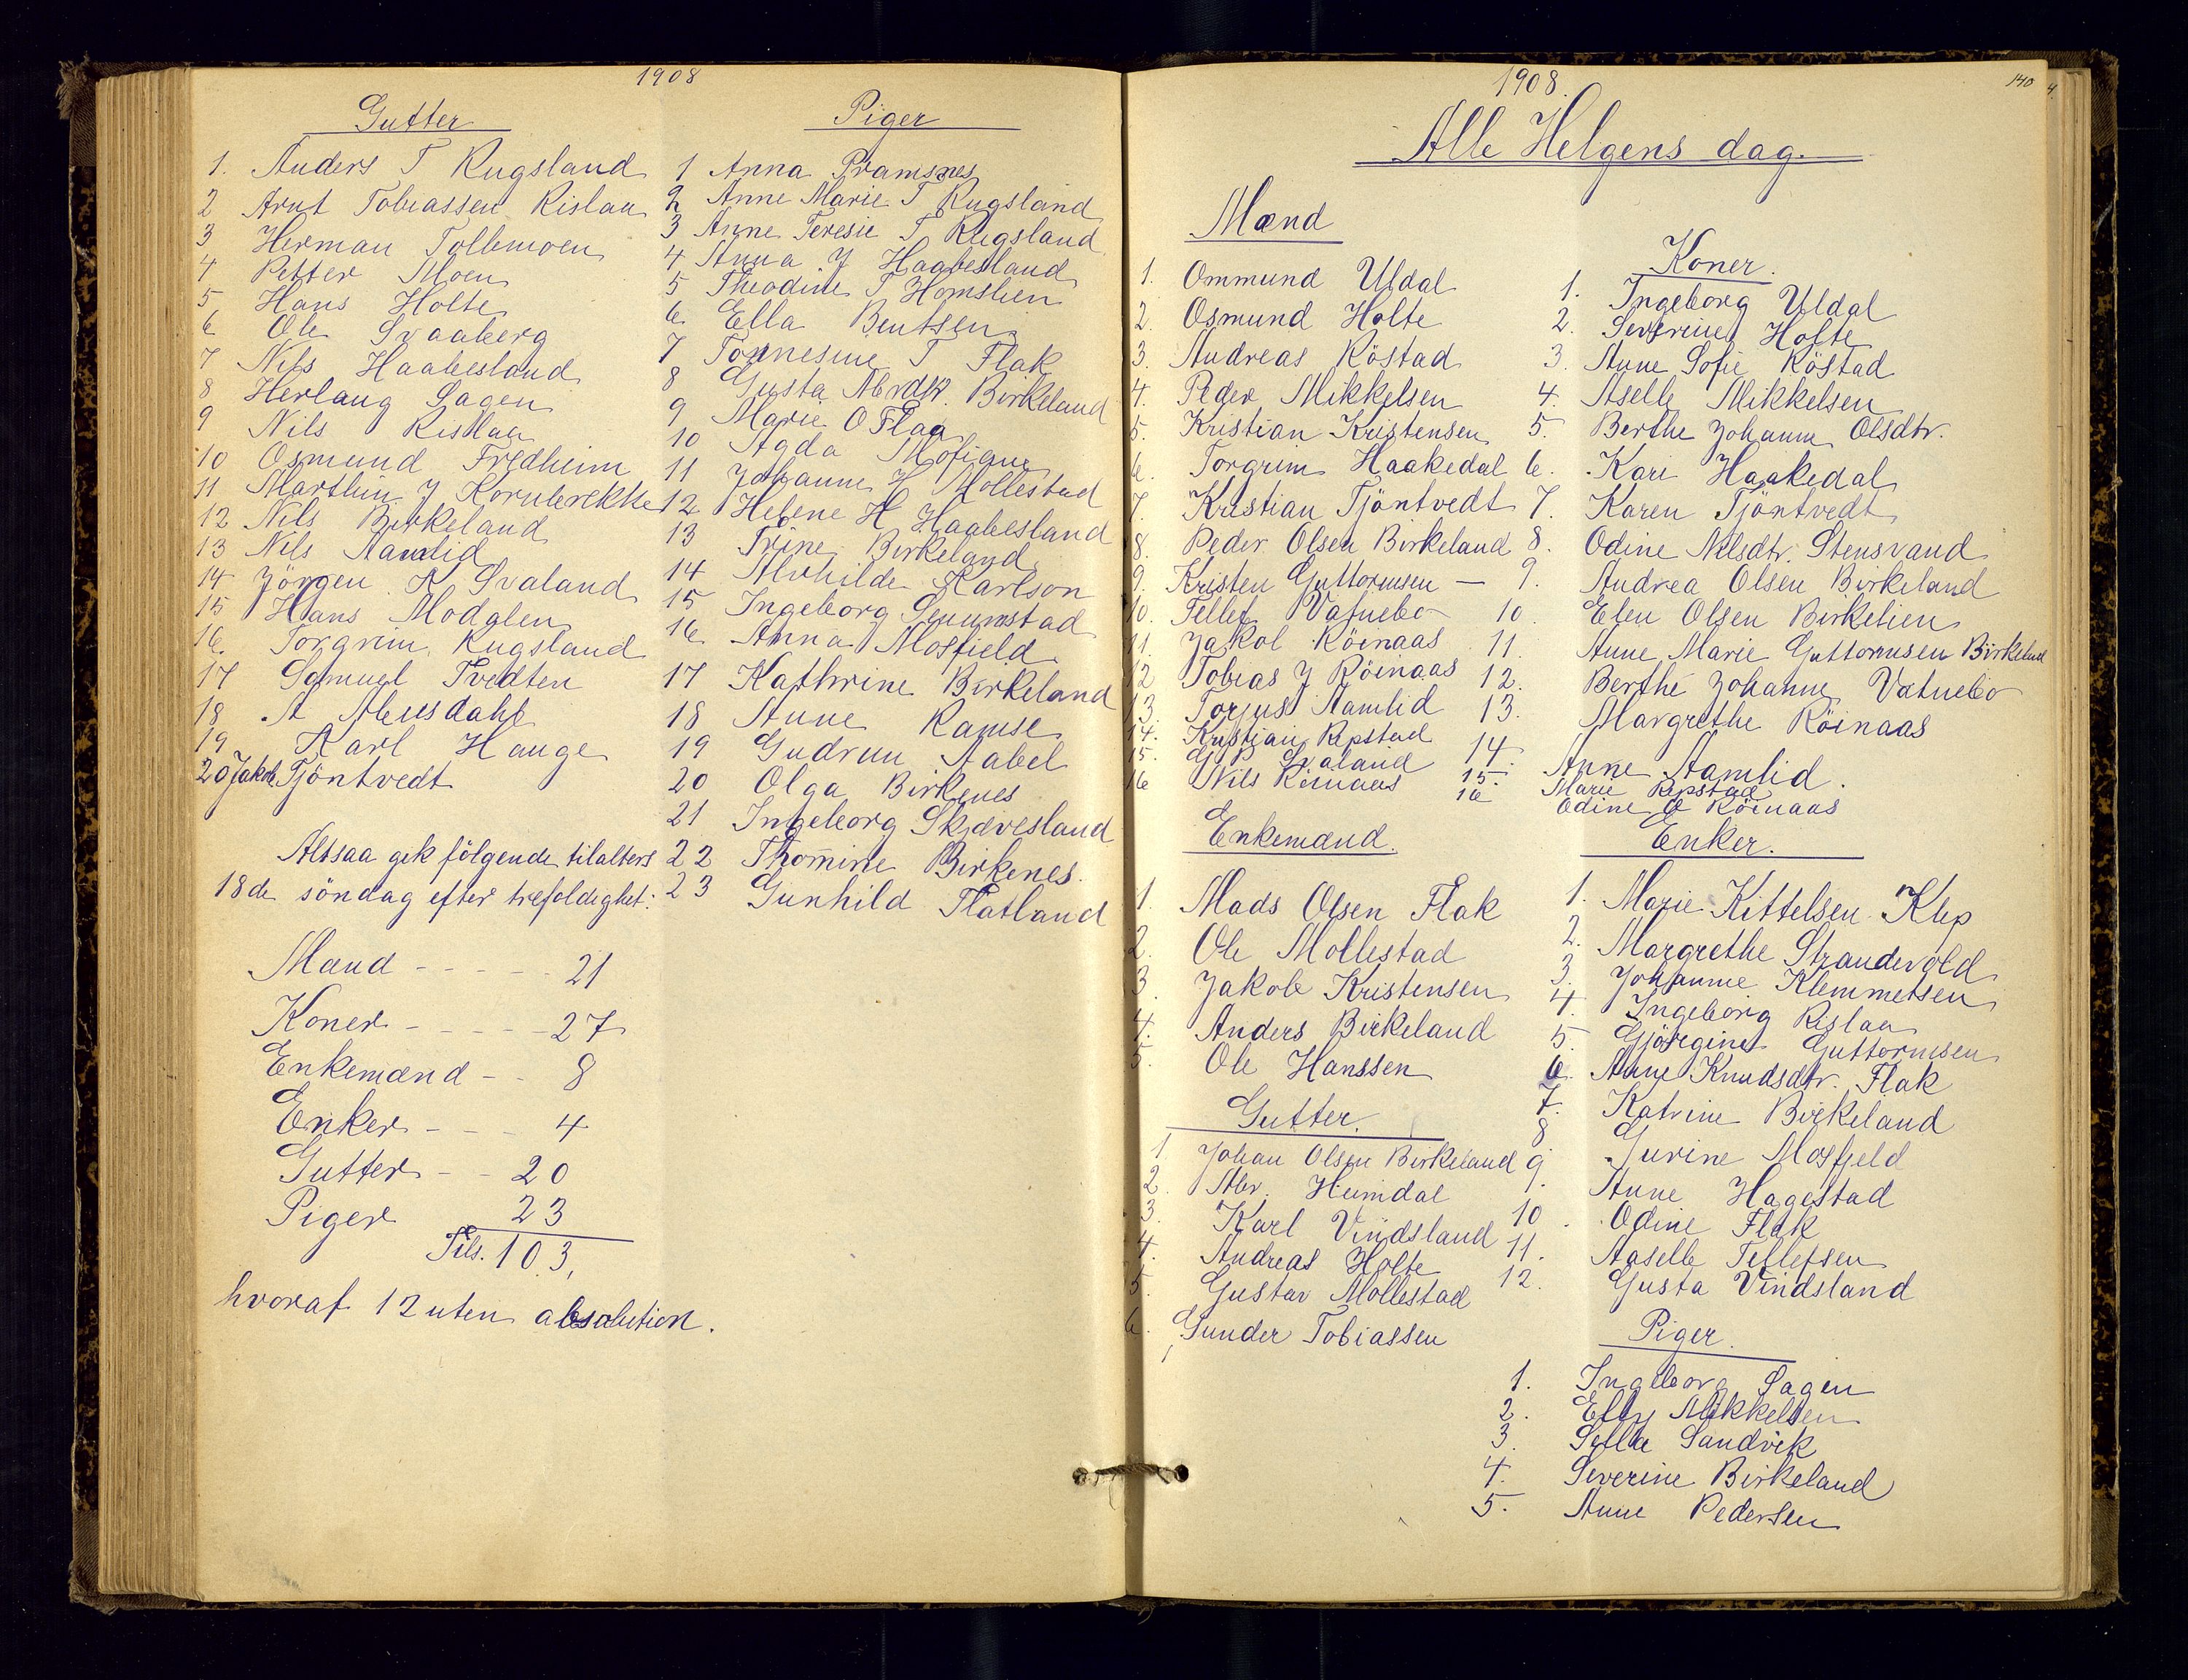 1908
Gutter
1. Anders T Rugsland
2 Arnt Tobiassen Rislaa
3 Herman Tollemoen
4 Petter Moen
5 Hans Holte
6 Ole Svaaberg
7 Nils Haabesland
8 Herlaug Sagen
9 Nils Rislaa
10 Osmund Fredheim
11 Marthin J Kornbrekke
12 Nils Birkeland
13 Nils Aamlid
14 Jörgen K Svaland
15 Hans Modalen
16 Torgrim Rugsland
17 Samuel Tvedten
18 A Abusdahl
19 Karl Hauge
20 Jakob Tjöntvedt
Altsaa gik fölgende tilalters
18de söndag efter trefoldighet:
Mænd - - - - - 21
Koner - - - - - 27
Enkemænd - - 8
Enker - - - 4
Gutter - - 20
Piger 23
Tils. 103,
hvoraf 12 uten absolution.
Piger
1 Anna Pramsnes
2 Anne Marie T Rugsland
3 Anne Teresie T Rugsland
4 Anna J Haabesland
5 Theodine T Homslien
6 Ella Bentsen
7 Tonnesine T Flak
8 Gusta Birkeland
9 Marie O Flaa
10 Agda Mofiane
11 Johanne H Mollestad
12 Helene H Haabesland
13 Trine Birkeland
14 Alvhilde Karlson
15 Ingeborg
16 Anna Mosfield
17 Kathrine Birkeland
18 Anne Ramse
19 Gudrun Aabel
20 Olga Birkenes
21 Ingeborg Skjævesland
22 Thomine Birkenes.
23 Gunhild Flatland
1908.
140
Alle Helgens dag.
Mænd
1. Ommund Uldal
2. Osmund Holte
3. Andreas Röstad
4. Peder Mikkelsen
5. Kristian Kristensen
6. Torgrim Haakedal
7. Kristian Tjöntvedt
8. Peder Olsen Birkeland
9. Kristen Guttormsen —
10. Tellef Vatnebo
11. Jakob Röinaas
12 Tobias J Röinaas
13. Torjus Aamlid
14. Kristian Repstad
15. G P Svaland
16 Nils Röinaas
Koner.
1. Ingeborg Uldal
2. Severine Holte
3. Anne Sofie Röstad
4. Aselle Mikkelsen
5. Berthe Johanne Olsdtr.
6. Kari Haakedal
7. Karen Tjöntvedt
8. Odine Nilsdtr. Stensvand
9. Andrea Olsen Birkeland
10. Elen Olsen Birkelien
11. Anne Marie Guttormsen Birkeland
12. Berthe Johanne Vatnebo
13. Margrethe Röinaas
14. Anne Aamlid.
15. Marie Repstad
16 Odine O Röinaas
Enkemænd.
1. Mads Olsen Flak
2. Ole Mollestad
3. Jakob Kristensen
4. Anders Birkeland
5. Ole Hanssen
Gutter.
1 Johan Olsen Birkeland
2. Abr. Heimdal
3. Karl Vindsland
4. Andreas Holte
5. Gustav Mollestad
6. Gunder Tobiassen
Enker.
1. Marie Kittelsen Klep
2. Margrethe Strandevold
3. Johanne Klemmetsen
4. Ingeborg Rislaa
5. Gjörgine Guttormsen
6. Anne Knudsdtr. Flak
7. Katrine Birkeland
8 Gurine Mosfjeld
9. Anne Hagestad
10. Odine Flak
11. Aaselle Tellefsen
12. Gusta Vindsland
Piger.
1. Ingeborg Sagen
2. Elly Mikkelsen
3. Sella Sandvik
4. Severine Birkeland
5. Anne Pedersen